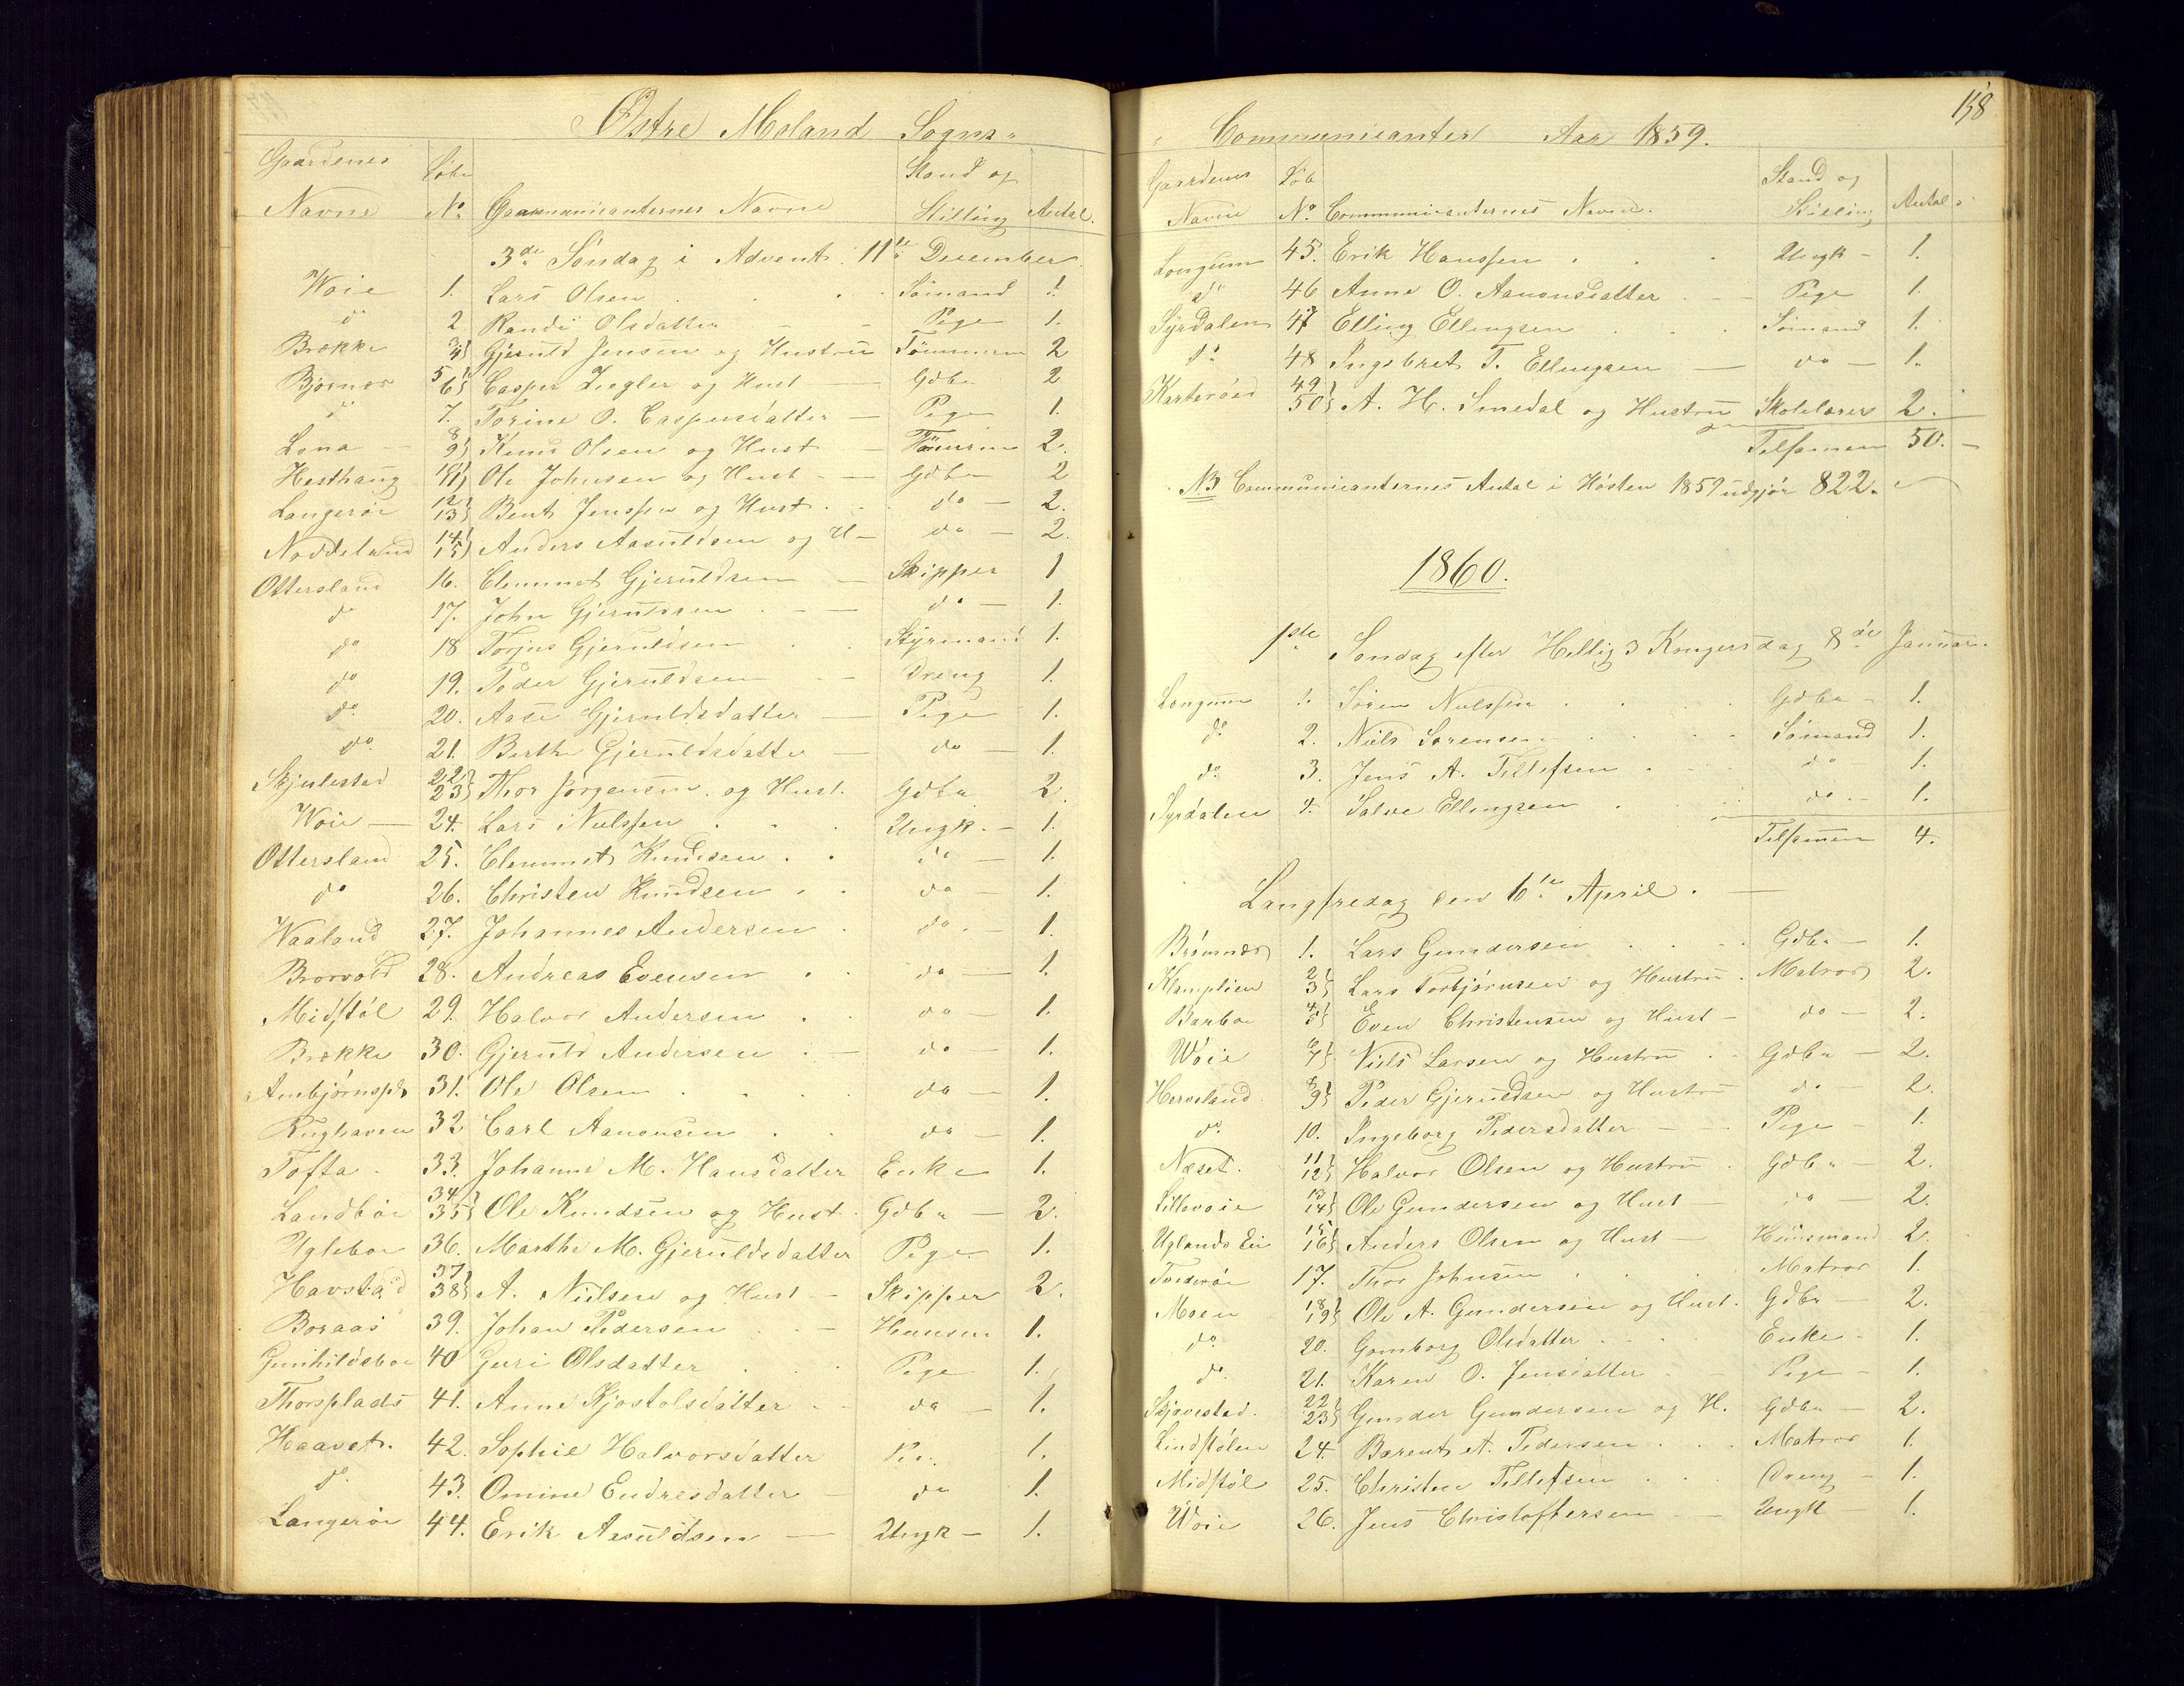 Østre Moland Sogns
Gaardenes Løbe Stand og
Navne No Communicanternes Navne Stilling Antal.
3de Søndag i Advent 11te December
Woie 1. Lars Olsen Sømand 1.
do 2. Randi Olsdatter Pige 1.
Brække 3/4 Gjeruld Jensen og Hustru Tømmerm 2
Bjørnes 5/6 Casper Ziegler og Hust Gdbr 2
do 7. Torine O. Caspersdatter Pige 1.
Lona 8/9 Knud Olsen og Hust Tømmerm 2.
Hesthaug 10/11 Ole Johnsen og Hust Gdbr 2
Langerøe 12/13 Bent Jenssen og Hust do 2.
Noddeland 14/15 Anders Aasuldsen og H do 2.
Ottersland 16. Clemmet Gjeruldsen Skipper 1
do 17. John Gjeruldsen do 1.
do 18 Torjus Gjeruldsen Styrmand 1.
do 19. Peder Gjeruldsen Dreng 1.
do 20. Aase Gjeruldsdatter Pige 1.
do 21. Berthe Gjeruldsdatter do 1.
Skjulestad 22/23 Thor Jørgensen og Hust. Gdbr 2.
Woie 24. Lars Nielssen Ungk. 1.
Ottersland 25. Clemmet Knudsen do 1.
do 26. Christen Knudsen do 1.
Waaland 27. Johannes Andersen do 1.
Brorvold 28. Andreas Evensen do 1.
Midstøl 29. Halvor Andersen do 1.
Brække 30. Gjeruld Andersen do 1.
Ambjørnspl 31. Ole Olsen do 1.
Rughaven 32 Carl Aanonsen do 1.
Tofta 33. Johanne M. Hansdatter Enke 1.
Landbøe 34/35 Ole Knudsen og Hust. Gdbr 2.
Ugleboe 36. Marthe M. Gjeruldsdatter Pige 1.
Havstad 37/38 A. Nielsen og Hust Skipper 2.
Boraas 39. Johan Pedersen Huusm 1.
Gunhildsboe 40 Guri Olsdatter Pige 1.
Thorsplads 41. Anne Kjøstolsdatter do 1.
Haavet. 42. Sophie Halvorsdatter 1.
do 43. Omine Endresdatter do 1.
Langerøe 44. Erik Aasuldsen Ungk 1.
158
Communicanter Aar 1859.
Gaardenes Løb Stand og
Navne No. Communicanternes Navne. Stilling Antal
Longum 45. Erik Hanssen Ungk 1.
do 46 Anne O. Aanonsdatter Pige 1.
Syrdalen 47 Elling Ellingsen Sømand 1.
do 48 Ingebret T. Ellingsen do 1.
Kasterøed 49/50 A. H. Smedal og Hustru Skolelærer 2.
Tilsamen 50.
NB Communicanternes Antal i Høsten 1859 udgjør 822.
1860.
1ste Søndag efter Hellig 3 Kongersdag 8de Januar.
Longum 1. Søren Nielssen Gdbr 1.
do 2. Niels Sørensen Sømand 1.
do 3. Jens A. Tellefsen do 1.
Syrdalen 4. Salve Ellingsen do 1.
Tilsamen 4.
Langfredag den 6te April.
Brømnes 1. Lars Gundersen Gdbr 1.
Klemplien 2/3 Lars Torbjørnsen og Hustru Matros 2.
Barboe 4/5 Even Christensen og Hust do 2.
Woie 6/7 Niels Larsen og Hustru Gdbr 2.
Herveland 8/9 Peder Gjeruldsen og Hustru do 2.
do. 10. Ingeborg Pedersdatter Pige 1.
Næset. 11/12 Halvor Olsen og Hustru Gdbr 2.
Lillevoie 13/14 Ole Gundersen og Hust do 2.
Uglands Ei 15/16 Anders Olsen og Hust Huusmand 2.
17. Thor Johnsen Matros 1.
Moen 18/19 Ole A. Gundersen og Hust. Gdbr 2.
do 20. Gomborg Olsdatter Enke 1.
do 21. Karen O. Jensdatter Pige 1.
Skjævestad. 22/23 Gunder Gundersen og H. Gdbr 2.
Lindstølen 24. Barent A. Pedersen Matros 1.
Midstøl 25. Christen Tellefsen Dreng 1.
Woie 26. Jens Christoffersen Ungk 1.